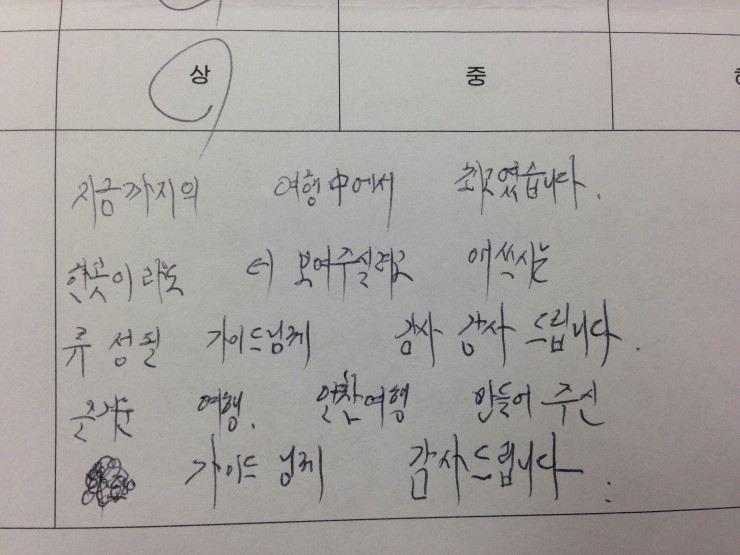 상 중
지금까지의 여행中에서 최고였습니다.
한곳이라도 더 보여주실려고 애쓰시는
류성필 가이드님께 감사 감사 드립니다.
즐거운 여행. 알찬여행 만들어 주신
가이드님께 감사드립니다